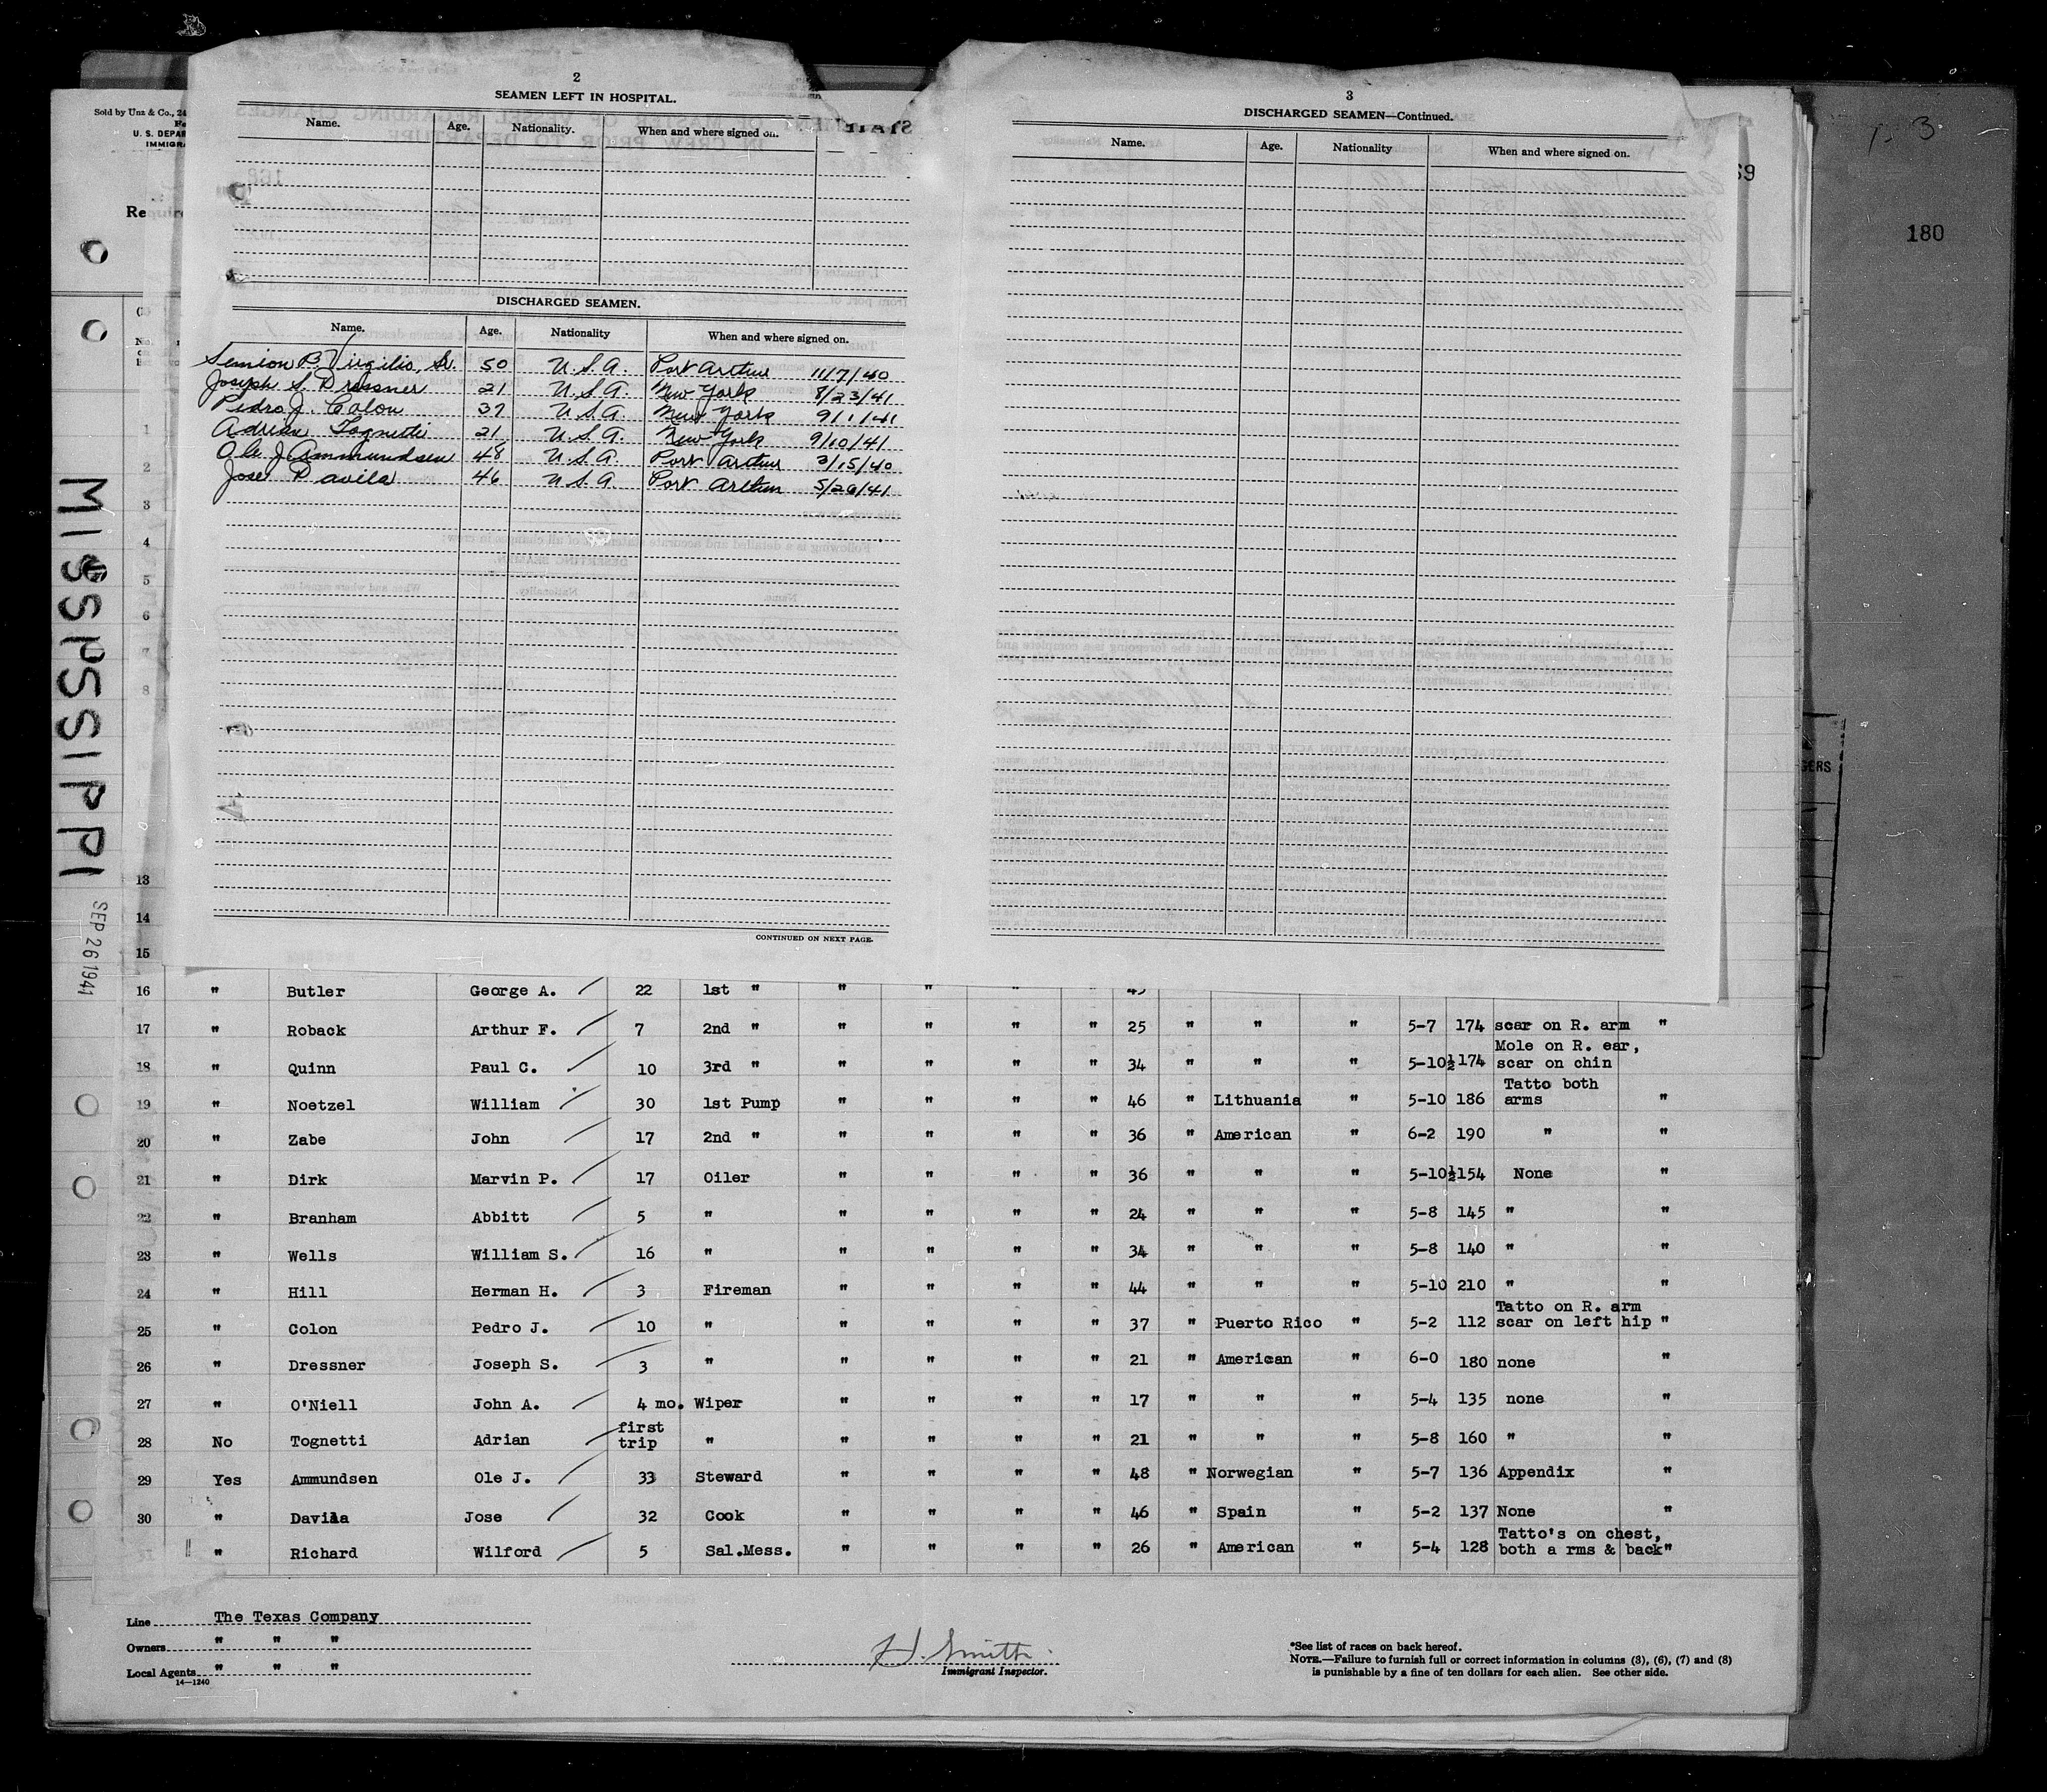 Sold by Unz & Co., 24
U. S. DEPAR
IMMIGRA
Require
MISSPSSIPPI
SEP 26 1941
2
SEAMEN LEFT IN HOSPITAL.
Name. Age. Nationality. When and where signed on.
DISCHARGED SEAMEN.
Name. Age. Nationality When and where signed on.
Semion B. Virgilio, Sr. 50 U.S.A. Port Arthur 11/7/40
Joseph S. Dressner 21 U.S.A. New York 8/23/41
Pedro J. Colon 37 U.S.A. New York 9/1/41
Adrian Tognetti 21 U.S.A. New York 9/10/41
Ole J. Ammundsen 48 U.S.A. Port Arthur 3/15/40
Jose Davila 46 U.S.A. Port Arthur 5/26/41
CONTINUED ON NEXT PAGE.
3
DISCHARGED SEAMEN—Continued.
Name. Age. Nationality When and where signed on.
69
3
180
GERS
1
2
3
4
5
6
7
8
13
14
15
16 " Butler George A. 22 1st " " " " 45
17 " Roback Arthur F. 7 2nd " " " " " 25 " " " 5-7 174 scar on R. arm "
18 " Quinn Paul C. 10 3rd " " " " " 34 " " 5-10½ 174 Mole on R. ear,
scar on chin
19 " Noetzel William 30 1st Pump " " " " 46 " Lithuania " 5-10 186 Tatto both
arms "
20 " Zabe John 17 2nd " " " " " 36 " American " 6-2 190 " "
21 " Dirk Marvin P. 17 Oiler " " " " 36 " " " 5-10½ 154 None "
22 " Branham Abbitt 5 " " " " " 24 " " " 5-8 145 " "
23 " Wells William S. 16 " " " " " 34 " " " 5-8 140 " "
24 " Hill Herman H. 3 Fireman " " " " 44 " " " 5-10 210 " "
25 " Colon Pedro J. 10 " " " " " 37 " Puerto Rico " 5-2 112 Tatto on R. arm
scar on left hip "
26 " Dressner Joseph S. 3 " " " " " 21 " American " 6-0 180 none "
27 " O'Niell John A. 4 mo. Wiper " " " " 17 " " " 5-4 135 none "
28 No Tognetti Adrian first
trip " " " " " 21 " " " 5-8 160 " "
29 Yes Ammundsen Ole J. 33 Steward " " " " 48 " Norwegian " 5-7 136 Appendix "
30 " Davila Jose 32 Cook " " " " 46 " Spain " 5-2 137 None "
" Richard Wilford 5 Sal.Mess. " " " " 26 " American " 5-4 128 Tatto's on chest,
both a rms & back"
Line The Texas Company
Owners " " "
Local Agents " " "
14—1240
H. Smith
Immigrant Inspector.
*See list of races on back hereof.
NOTE.—Failure to furnish full or correct information in columns (3), (6), (7) and (8)
is punishable by a fine of ten dollars for each alien. See other side.